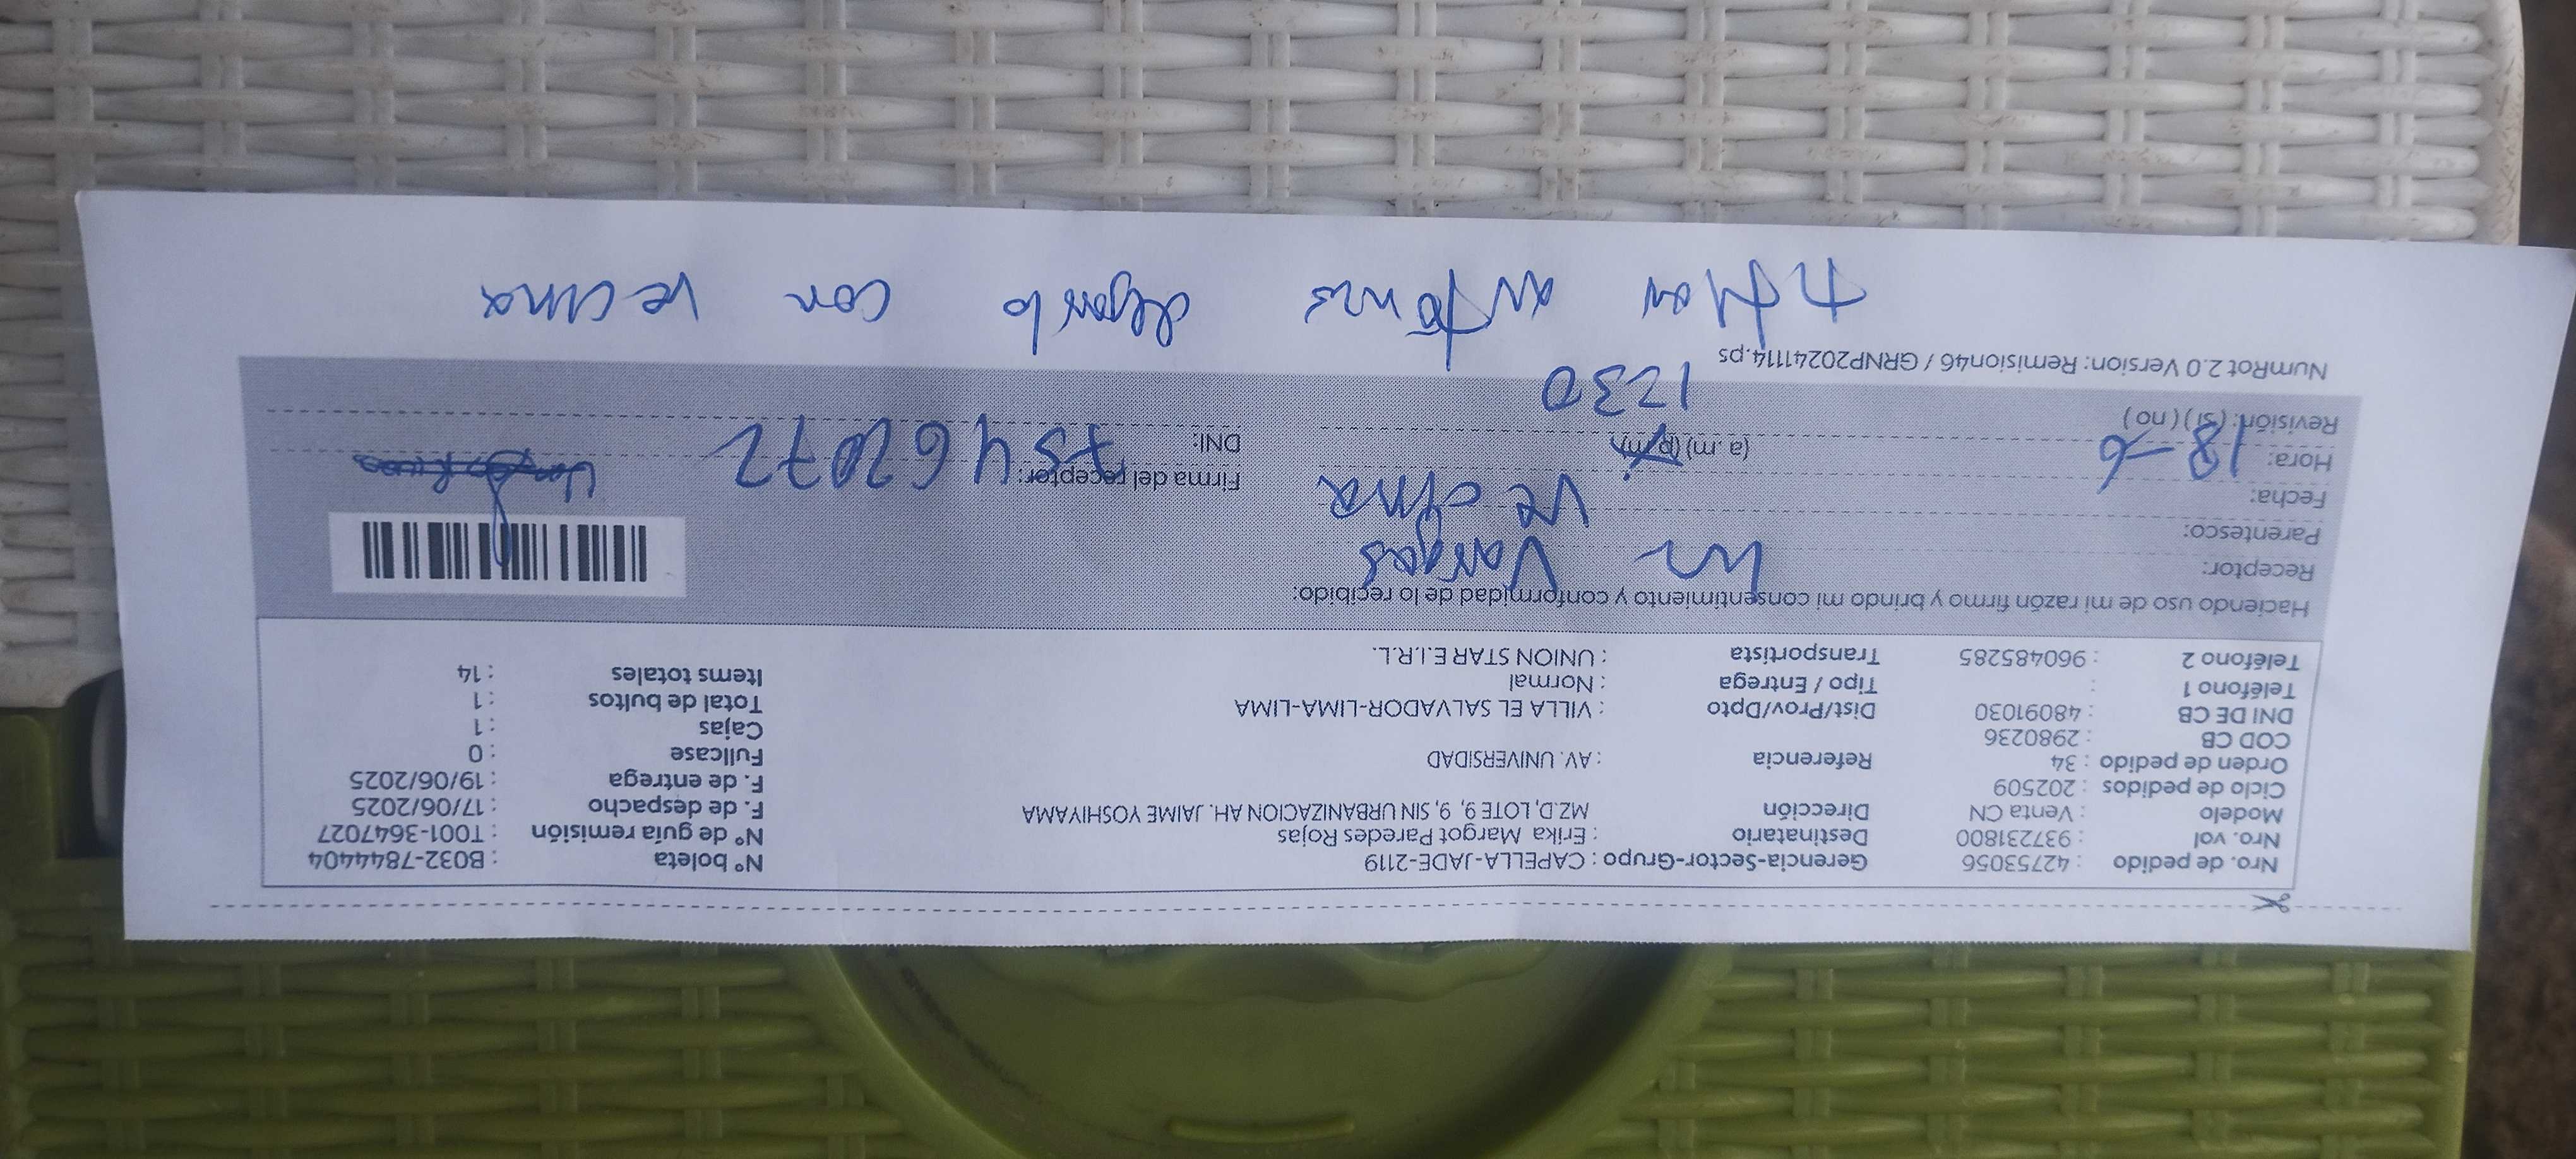 Nro. de pedido : 42753056 Gerencia-Sector-Grupo : CAPELLA-JADE-2119 N° boleta : B032-7844404
Nro. vol : 937231800 Destinatario : Erika Margot Paredes Rojas N° de guía remisión : T001-3647027
Modelo : Venta CN Dirección MZ.D, LOTE 9, 9, SIN URBANIZACION AH. JAIME YOSHIYAMA F. de despacho : 17/06/2025
Ciclo de pedidos : 202509 F. de entrega : 19/06/2025
Orden de pedido : 34 Referencia : AV. UNIVERSIDAD Fullcase : 0
COD CB : 2980236 Cajas : 1
DNI DE CB : 48091030 Dist/Prov/Dpto : VILLA EL SALVADOR-LIMA-LIMA Total de bultos : 1
Teléfono 1 : Tipo / Entrega : Normal Items totales : 14
Teléfono 2 : 960485285 Transportista : UNION STAR E.I.R.L.
Haciendo uso de mi razón firmo y brindo mi consentimiento y conformidad de lo recibido:
Receptor: Vargas
Parentesco: vecina
Fecha: 18-6 Firma del receptor:
Hora: (a. m) (p. m) DNI: 75462072
Revisión: (si) (no) 1230
NumRot 2.0 Version: Remision46 / GRNP20241114.ps
dejarlo con vecina